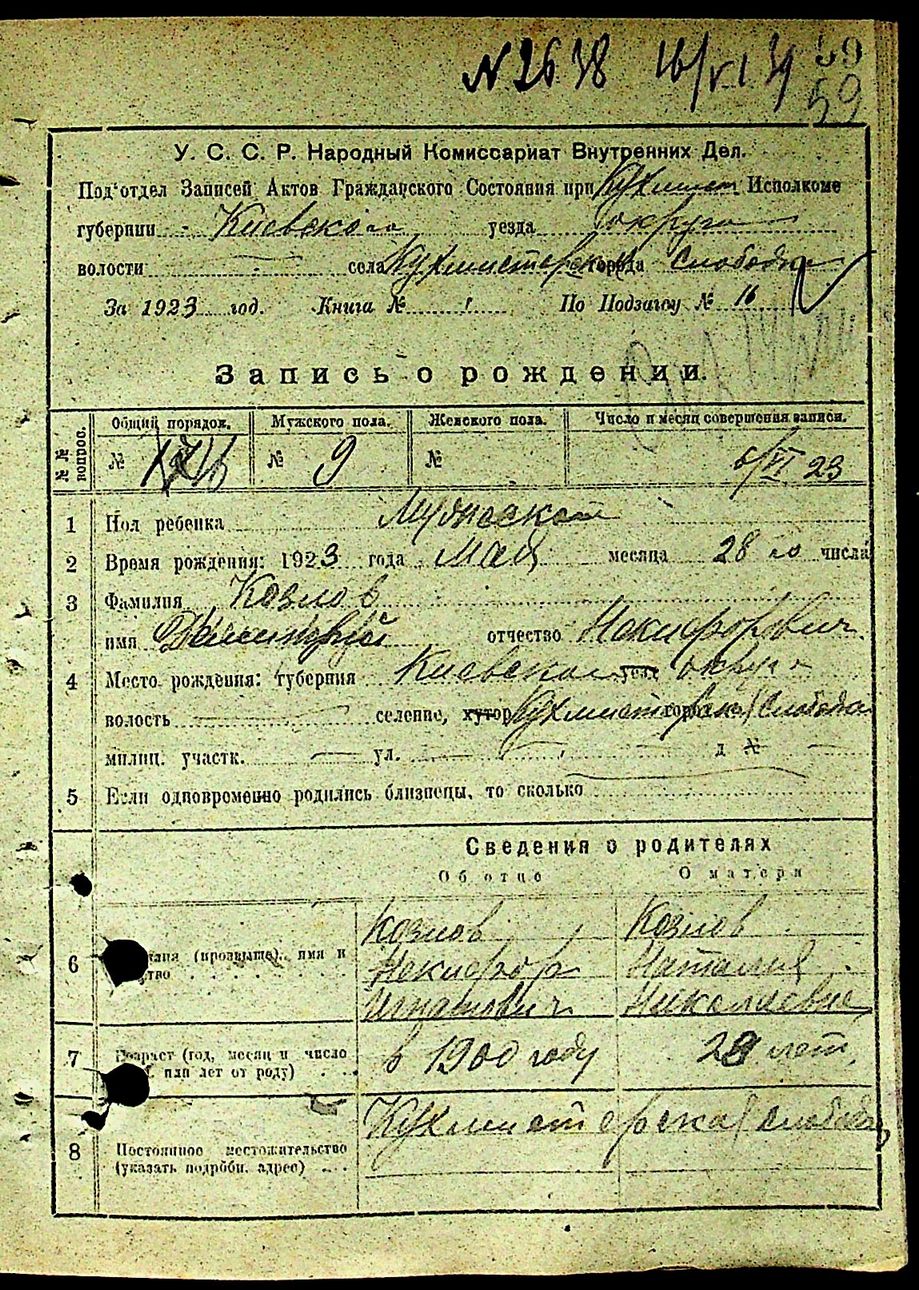 N 2638 16/VI 31 59
59
У. С. С. Р. Народный Комиссариат Внутренних Дел.
Под'отдел Записей Актов Гражданского Состояния при Кухмист Исполкоме
губернии Киевского уезда округа
волости села Кухмистерская города Слободка
За 1923 год. Книга № 1 По Подзагсу № 16
Запись о рождении.
№№ вопрос. Общий порядок. Мужского пола. Женского пола. Число и месяц совершения записи.
№ № 9 № 6/VI 23
1 Пол ребенка Мужеской
2 Время рождения: 1923 года Мая месяца 28 го числа
3 Фамилия Козлов
имя отчество Некифорович
4 Место рождения: губерния Киевского округ
волость селение, хутор Кухмистерская Слобода
милиц. участк. ул. д №
5 Если одновременно родились близнецы, то сколько
Сведения о родителях
Об отце О матери
Козлов Козлов
6 (прозвище), имя и Некифор Наталия
Игнатович Николаевна
7 Возраст (год, месяц и число в 1900 году 28 лет
или лет от роду)
Кухмистерская слобода
8 Постоянное местожительство
(указать подробн. адрес)